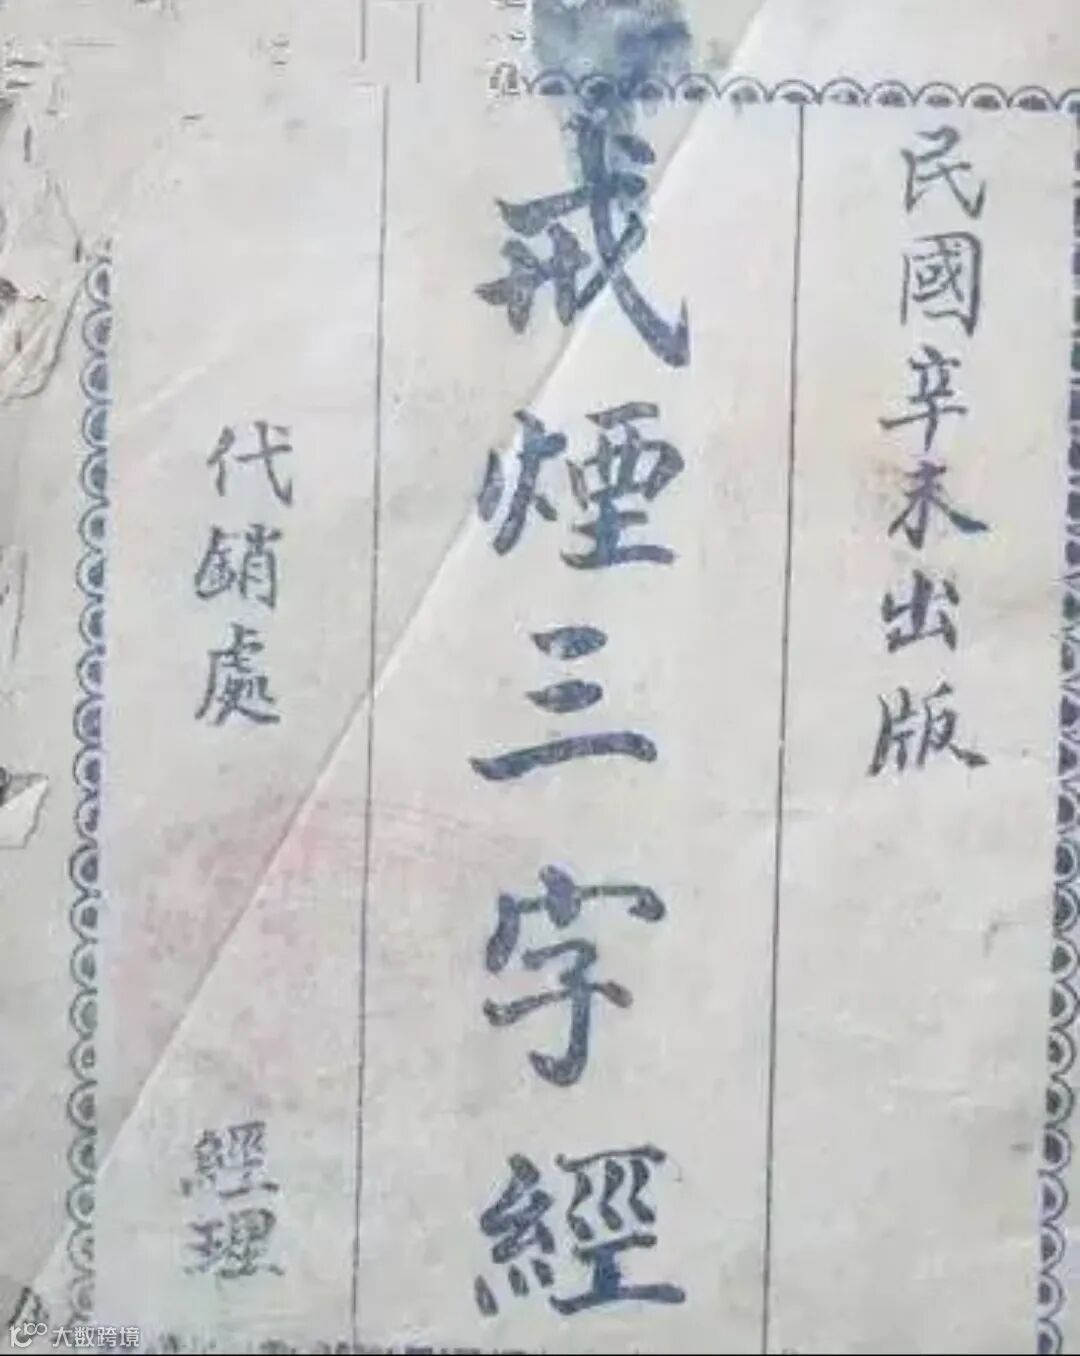 民國辛未出版
戒煙三字經
代銷處
經理
大数跨境